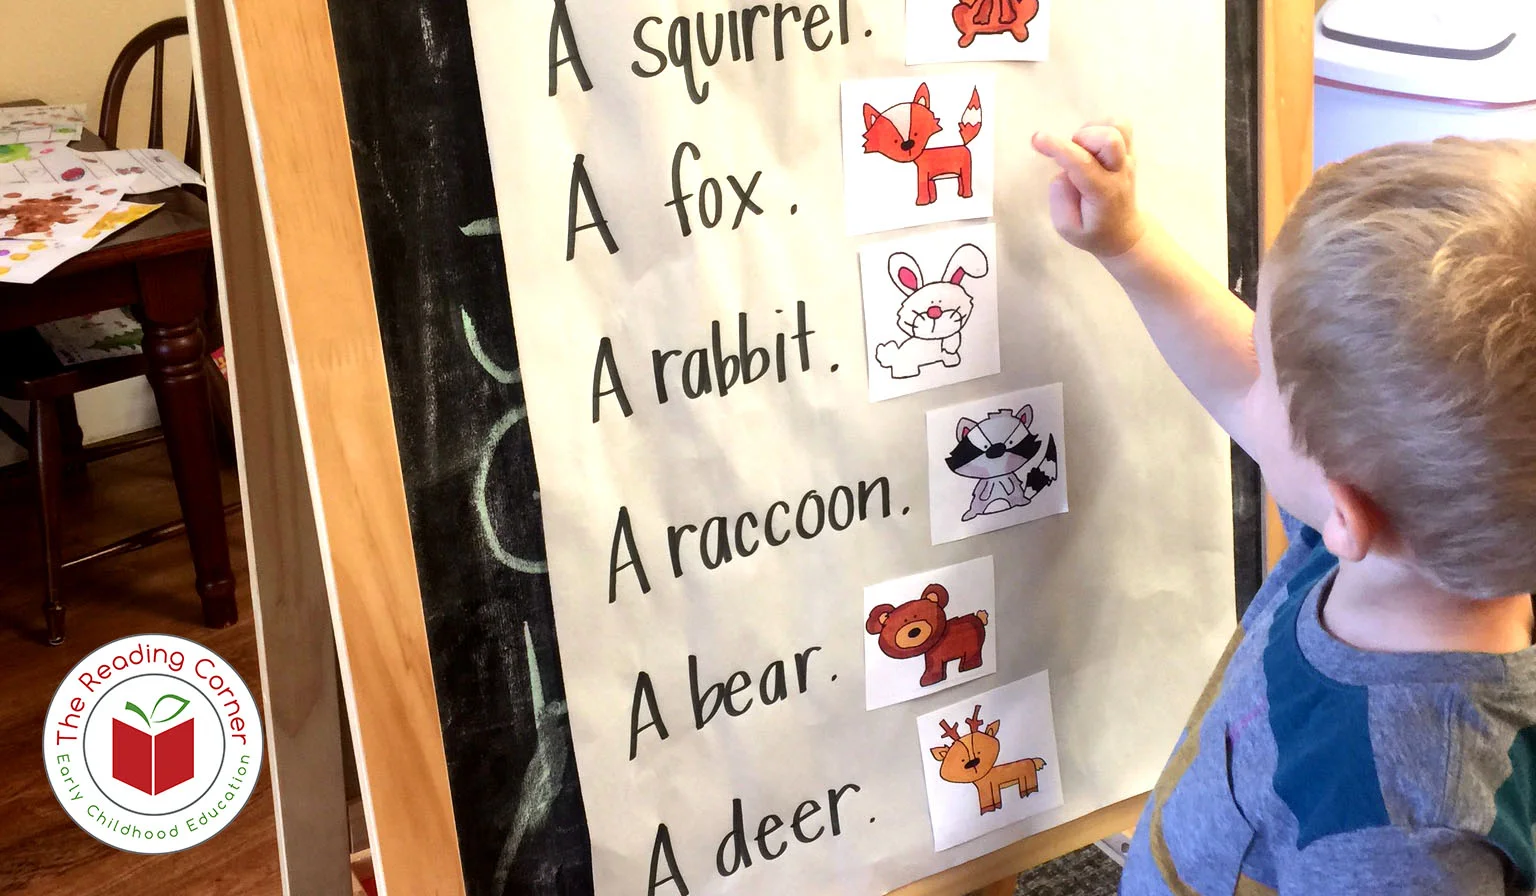 A squirrel.
A fox.
A rabbit.
A raccoon.
A bear.
A deer.
The Reading Corner
Early Childhood Education